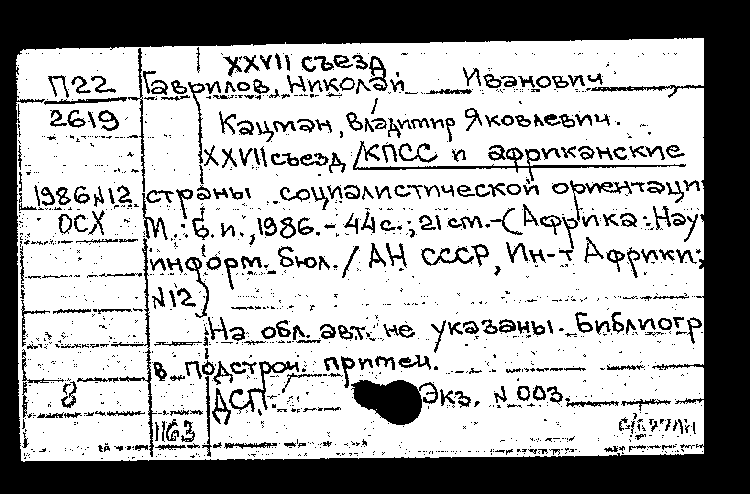 XXVII съезд
П22 Гаврилов, Николай Иванович
2619 Кацман, Владимир Яковлевич.
XXVII съезд /КПСС и африканские
1986 N12 страны социалистической ориентаци
ОСХ М.: Б.и., 1986. - 44с.; 21 cm. - (Африка: Нау
информ. бюл. / АН СССР, Ин-т Африки;
N12)
На обл. авт. не указаны. Библиогр
в подстроч. примеч.
8 ДСП. Экз. N 003.
1163